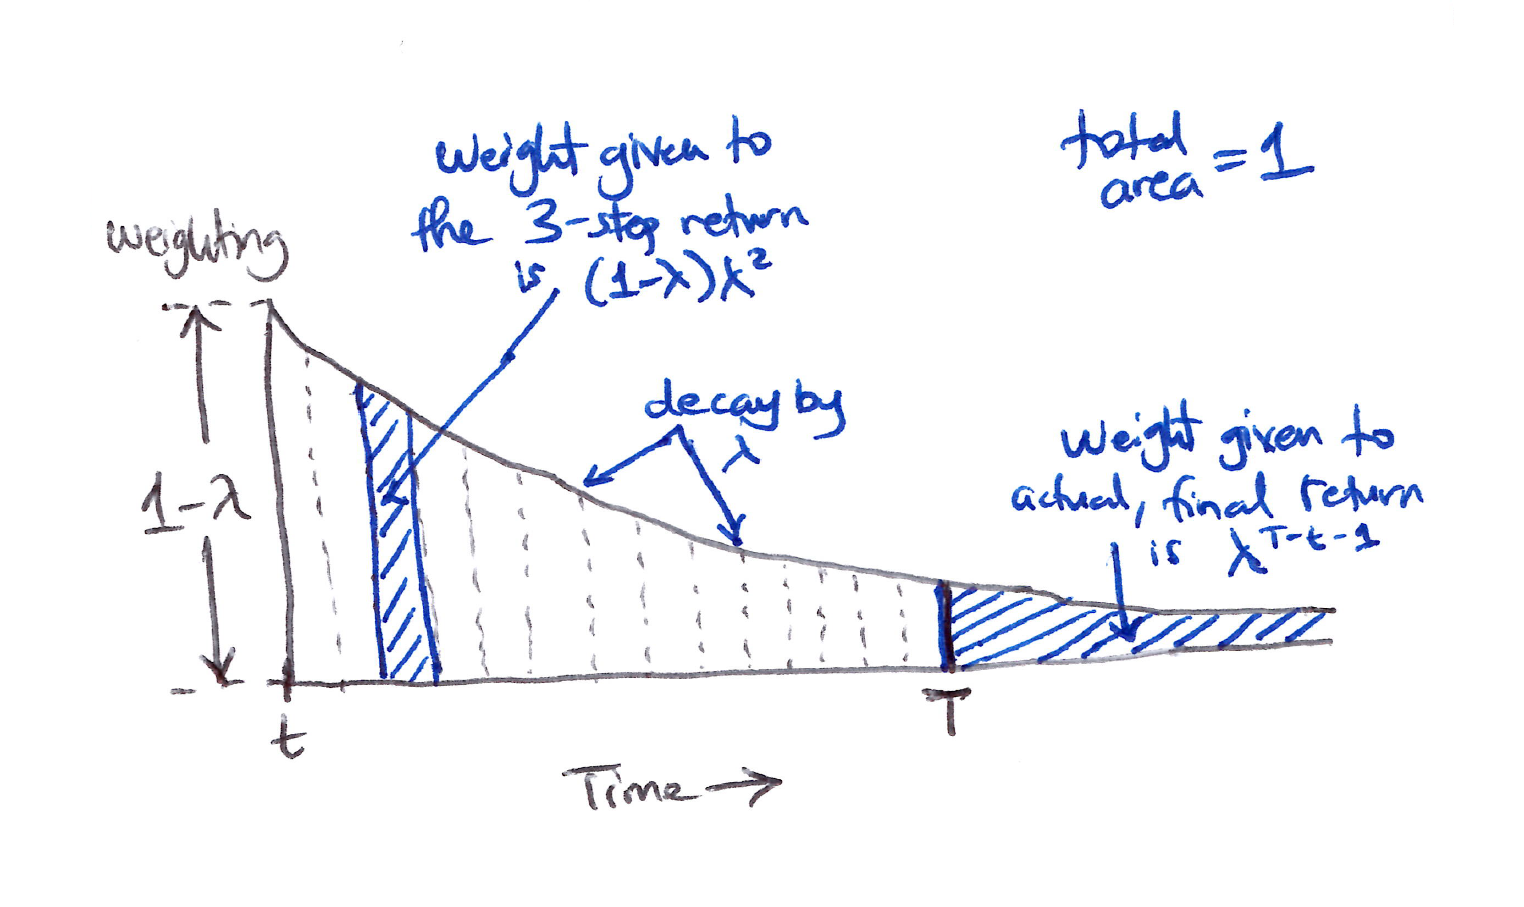 weight given to
the 3-step return
is (1-λ)λ²
total
area = 1
weighting
1-λ
decay by
λ
weight given to
actual, final return
is λ^{T-t-1}
t
T
Time →